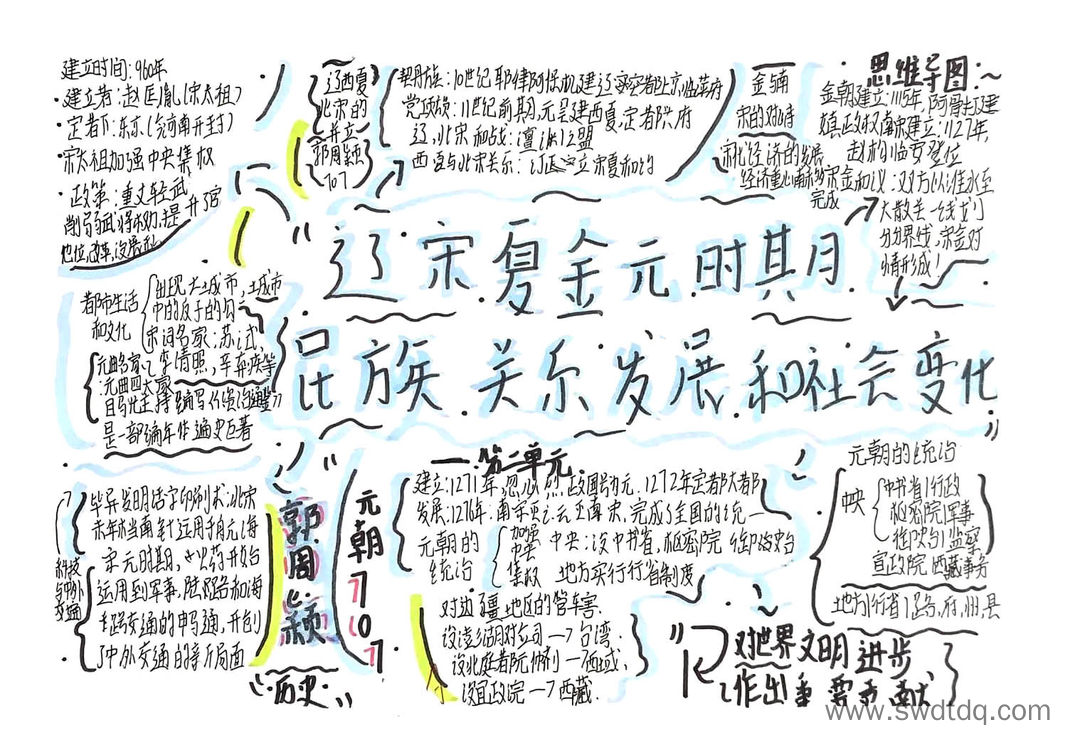 建立时间:960年
·建立者:赵匡胤(宋太祖)
·定者下:东京(今河南开封)
·宋太祖加强中央集权
·政策:重文轻武
削弱武将权力,提升文官
地位,改革,发展科
辽西夏
北宋的
并立
郭周颖
707
契丹族:10世纪耶律阿保机建辽 定都上京临潢府
党项族:11世纪前期,元昊建西夏,定者
辽,北宋和战:澶渊之盟
西夏与北宋关系:订立宋夏和约
金与南
宋的对峙
宋代经济的发展
经济重心南移
完成
思维导图:~
金朝建立:1115年,阿骨打建
政权 南宋建立:1127年,
赵构临安登位
宋金和议:双方以淮水至
大散关一线划
分分界线,宋金对
峙形成!
“辽宋复金元时期
民族关系发展和社会变化”
都市生活
和文化
出现大城市,
中的瓦子的勾
宋词名家:苏轼,
李清照,辛弃疾等
元曲名家
元曲四大家
司马光主持编写《资治通鉴》
是一部编年体通史巨著
科技
与中外
交通
毕昇发明活字印刷术:北宋
末年 指南针运用于 海
宋元时期,火药开始
运用到军事,陆路和海
路交通的 通,开创
了中外交通的新局面
郭周颖
“历史”
元朝707
一第二单元
建立:1271年,忽必烈改国号为元,1272年定都大都
发展:1276年:南宋灭亡 元 南宋,完成了全国的统一
元朝的
统治
加强
中央
集权
中央:设中书省,枢密院 御史台
地方实行行省制度
对边疆地区的管辖
设澎湖巡检司→台湾
设北庭都元帅府→西域,
设宣政院→西藏.
元朝的统治
中央
中书省|行政
枢密院|军事
御史台|监察
宣政院 西藏事务
地方|行省|路,府,州,县
对世界文明进步
作出重要贡献
www.swdtdq.com